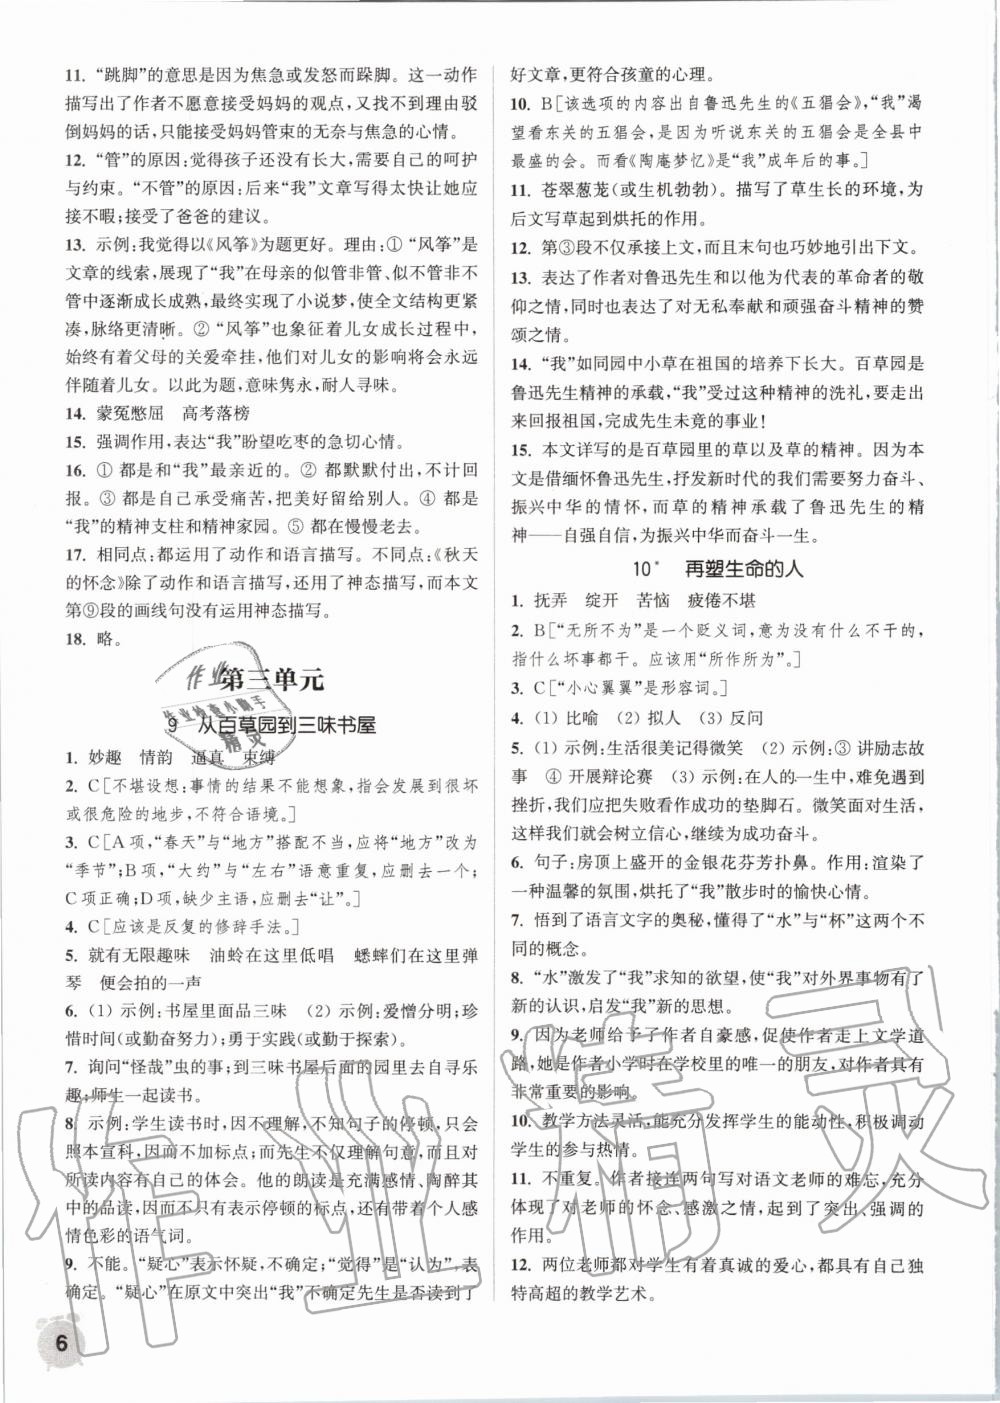 11. “跳脚”的意思是因为焦急或发怒而跺脚。这一动作
描写出了作者不愿意接受妈妈的观点，又无法用语言驳
倒妈妈的话，只能接受妈妈管束的无奈与焦急的心情。
12. “管”的原因：觉得孩子还不大，需要父母亲的呵护
与约束。“不管”的原因：后来“我”文章写得太快让她应
接不暇；接受了爸爸的建议。
13. 示例：我觉得以《风筝》为题更好。理由：① “风筝”是
文章的线索，展现了“我”在母亲的似管非管、似不管非不
管中逐渐成长成熟，最终实现了小说梦，使全文结构更紧
凑，脉络更清晰。② “风筝”也象征着儿女成长过程中，
始终有着父母的关爱牵挂，他们对儿女的影响将会永远
伴随着儿女。以此为题，意味隽永，耐人寻味。
14. 蒙冤憋屈　高考落榜
15. 强调作用，表达“我”盼望吃枣的急切心情。
16. ① 都是和“我”最亲近的。② 都默默付出，不计回
报。③ 都是自己承受痛苦，把美好留给别人。④ 都是
“我”的精神支柱和精神家园。⑤ 都在慢慢老去。
17. 相同点：都运用了动作和语言描写。不同点：《秋天
的怀念》除了动作和语言描写，还用了神态描写，而本文
第⑨段的画线句没有运用神态描写。
18. 略。
第三单元
9　从百草园到三味书屋
1. 妙趣　情韵　逼真　束缚
2. C[不堪设想：事情的结果不能想象，指会发展到很坏
或很危险的地步，不符合语境。]
3. C[A项，“春天”与“地方”搭配不当，应将“地方”改为
“季节”；B项，“大约”与“左右”语意重复，应删去一个；
C项正确；D项，缺少主语，应删去“让”。]
4. C[应该是反复的修辞手法。]
5. 就有无限趣味　油蛉在这里低唱　蟋蟀们在这里弹
琴　便会拍的一声
6. (1) 示例：书屋里面品三味　(2) 示例：爱憎分明；珍
惜时间(或勤奋努力)；勇于实践(或勤于探索)。
7. 询问“怪哉”虫的事；到三味书屋后面的园里去自寻乐
趣；师生一起读书。
8. 示例：学生读书时，因不理解，不知句子的停顿，只会
照本宣科，因而不加标点；而先生不仅理解句意，而且对
文句已经烂熟于心。他的朗读是充满感情、陶醉其
中的品读，因而不仅有表示停顿的标点，还有带着个人感
情色彩的语气词。
9. 不能。“疑心”表示怀疑，不确定；“觉得”是“认为”，表
确定。“疑心”在原文中突出“我”不确定先生是否读到了
好文章，更符合孩童的心理。
10. B[该选项的内容出自鲁迅先生的《五猖会》，“我”渴
望看东关的五猖会，是因为听说东关的五猖会是全县中
最盛的会。而看《陶庵梦忆》是“我”成年后的事。]
11. 苍翠葱茏(或生机勃勃)。描写了草生长的环境，为
后文写草起到烘托的作用。
12. 第③段不仅承接上文，而且末句也巧妙地引出下文。
13. 表达了作者对鲁迅先生和以他为代表的革命者的敬
仰之情，同时也表达了对无私奉献和顽强奋斗精神的赞
颂之情。
14. “我”如同园中小草在祖国的培养下长大。百草园是
鲁迅先生精神的承载，“我”受过这种精神的洗礼，要走出
来回报祖国，完成先生未竟的事业！
15. 本文详写的是百草园里的草以及草的精神。因为本
文是借缅怀鲁迅先生，抒发新时代的我们需努力奋斗、
振兴中华的情怀，而草的精神承载了鲁迅先生的精
神——自强自信，为振兴中华而奋斗一生。
10*　再塑生命的人
1. 抚弄　绽开　苦恼　疲倦不堪
2. B[“无所不为”是一个贬义词，意为没有什么不干的，
指什么坏事都干。应该用“所作所为”。]
3. C[“小心翼翼”是形容词。]
4. (1) 比喻　(2) 拟人　(3) 反问
5. (1) 示例：生活很美记得微笑　(2) 示例：③ 讲励志故
事　④ 开展辩论赛　(3) 示例：在人的一生中，难免遇到
挫折，我们应把失败看作成功的垫脚石。微笑面对生活，
这样我们就会树立信心，继续为成功奋斗。
6. 句子：房顶上盛开的金银花芬芳扑鼻。作用：渲染了
一种温馨的氛围，烘托了“我”散步时的愉快心情。
7. 悟到了语言文字的奥秘，懂得了“水”与“杯”这两个不
同的概念。
8. “水”激发了“我”求知的欲望，使“我”对外界事物有了
新的认识，启发“我”新的思想。
9. 因为老师给予了作者自豪感，促使作者走上文学道
路，她是作者小学时在学校里的唯一的朋友，对作者具有
非常重要的影响。
10. 教学方法灵活，能充分发挥学生的能动性，积极调动
学生的参与热情。
11. 不重复。作者接连两句写对语文老师的难忘，充分
体现了对老师的怀念、感激之情，起到了突出、强调的
作用。
12. 两位老师都对学生有着真诚的爱心，都具有自己独
特高超的教学艺术。
6
作业
作业检查小助手
精灵
作业精灵